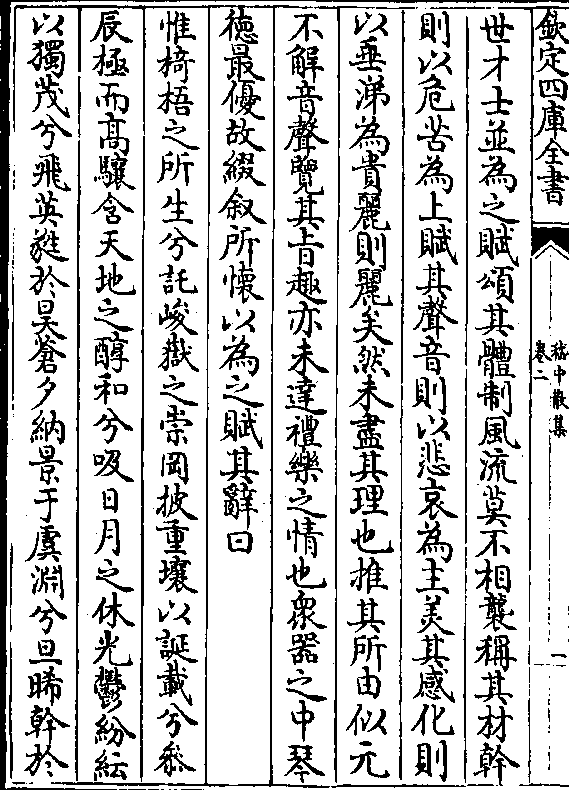 欽定四庫全書
嵇中散集
卷二
一
世才士並為之賦頌其體制風流莫不相襲稱其材幹
則以危苦為上賦其聲音則以悲哀為主美其感化則
以垂涕為貴麗則麗矣然未盡其理也推其所由似元
不解音聲覽其㫖趣亦未達禮樂之情也衆器之中琴
徳最優故綴叙所懷以為之賦其辭曰
惟椅梧之所生兮託峻嶽之崇岡披重壤以誕載兮叅
辰極而髙驤含天地之醇和兮吸日月之休光鬱紛紜
以獨茂兮飛英蕤於昊蒼夕納景于虞淵兮旦晞幹於